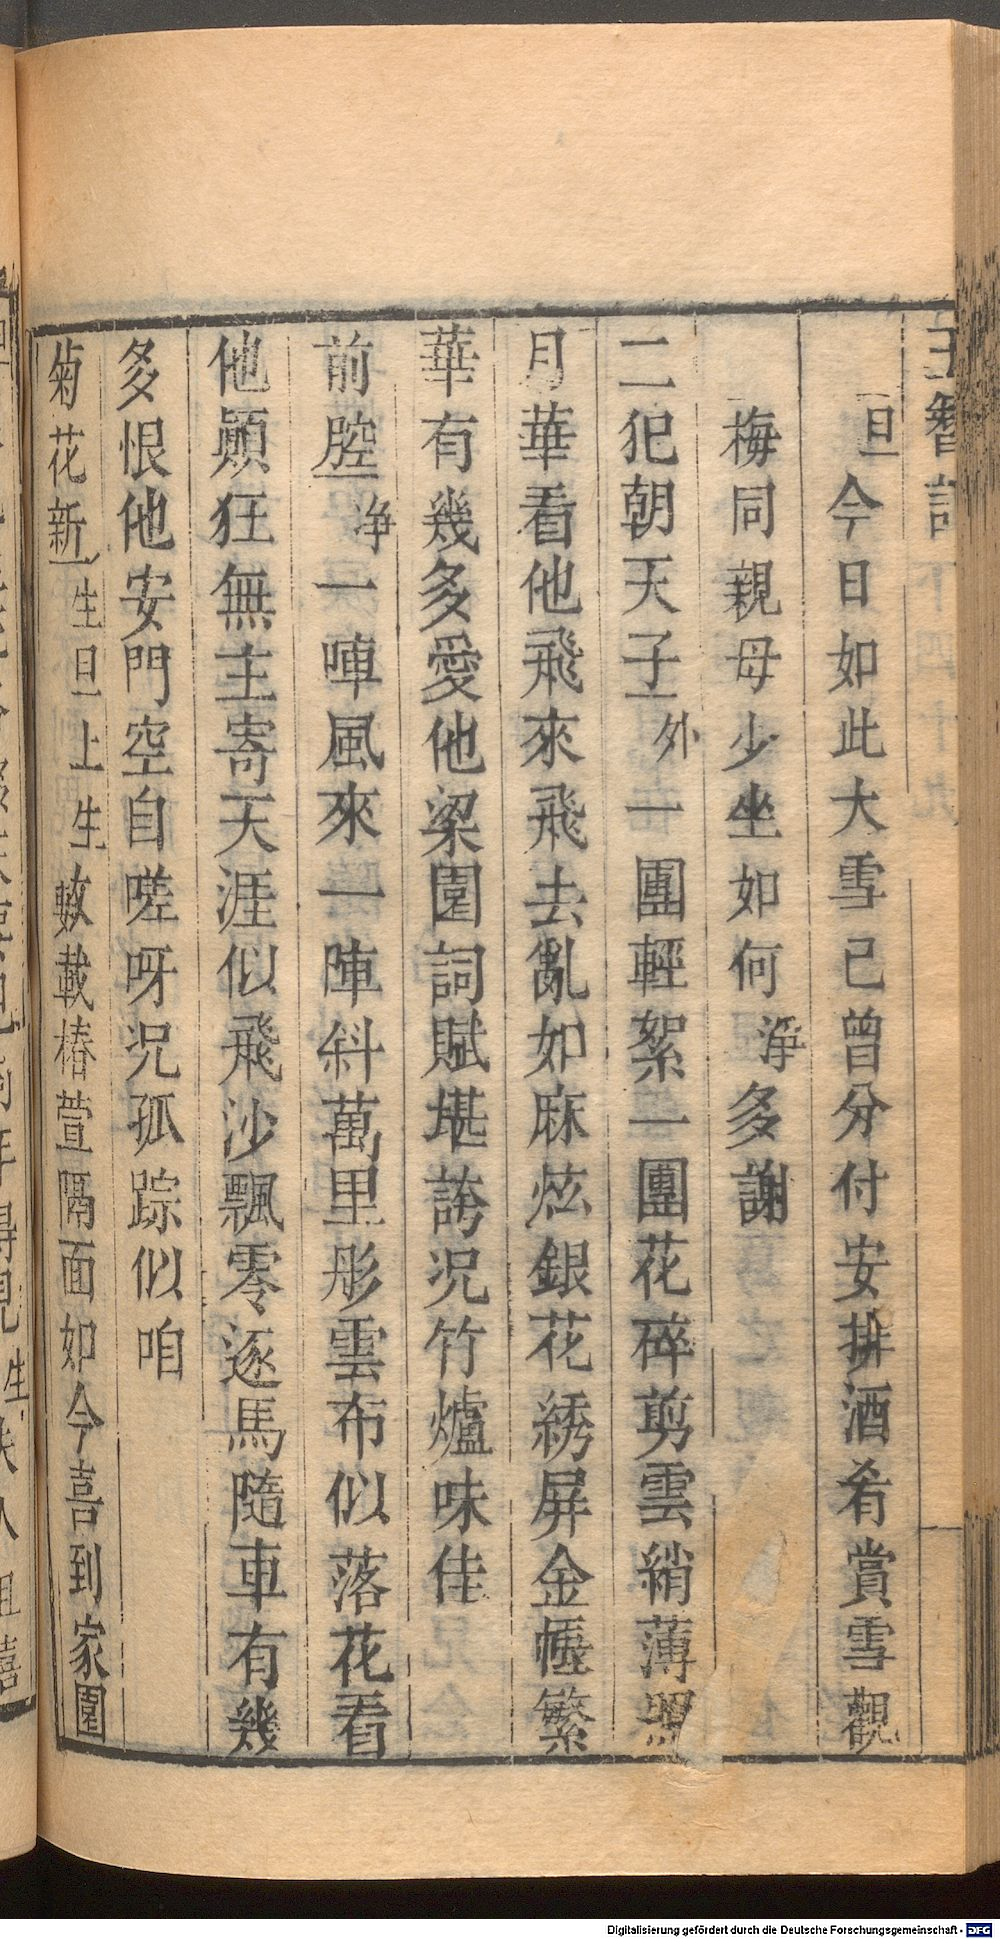 玉簪記
下 四十九
旦 今日如此大雪已曾分付安排酒肴賞雪觀
梅同親母少坐如何 淨 多謝
二犯朝天子 外 一團輕絮一團花碎剪雲綃薄罩
月華看他飛來飛去亂如麻炫銀花綉屏金幄繁
華有幾多愛他梁園詞賦堪誇況竹爐味佳
前腔 淨 一陣風來一陣斜萬里彤雲布似落花看
他顛狂無主寄天涯似飛沙飄零逐馬隨車有幾
多恨他安門空自嗟呀況孤踪似咱
菊花新 生旦上 生 數載椿萱隔面如今喜到家園
Digitalisierung gefördert durch die Deutsche Forschungsgemeinschaft - DFG